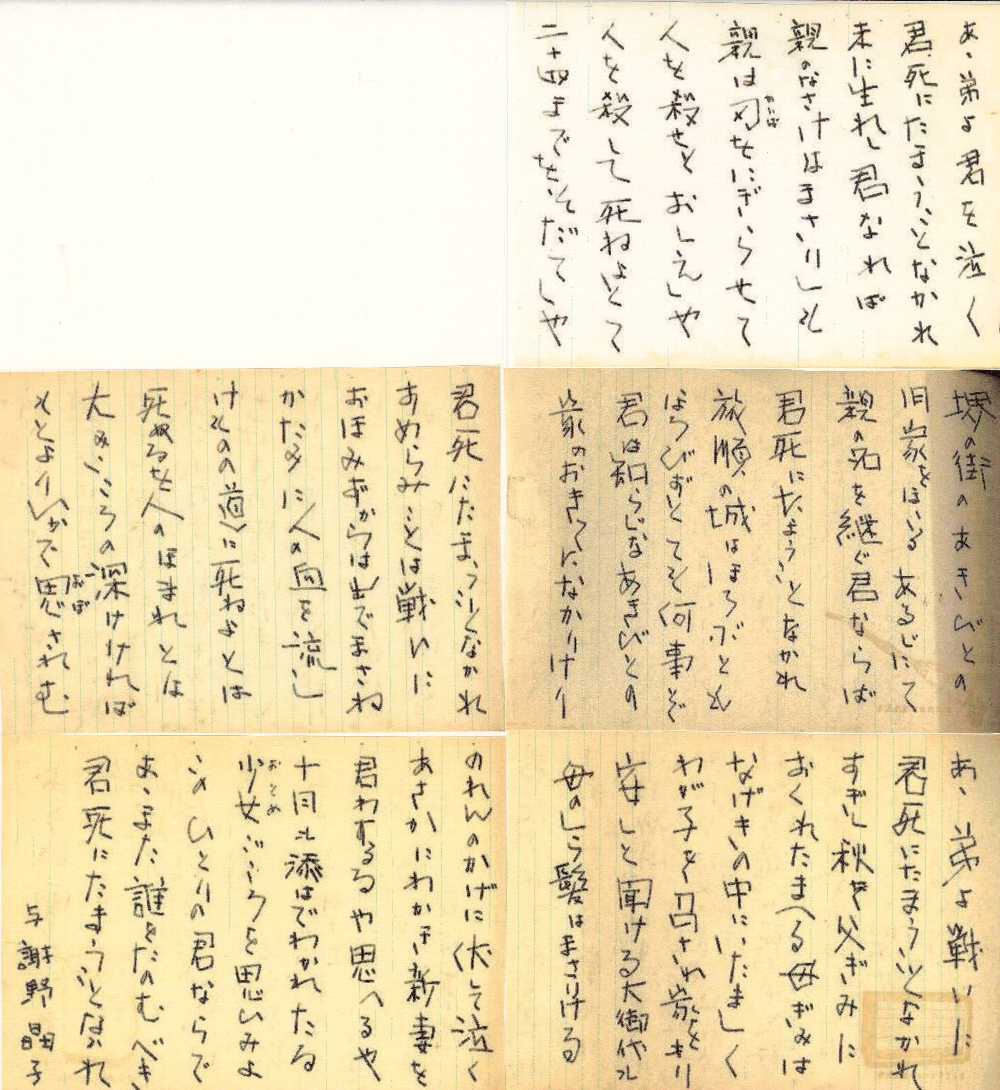 あゝ弟よ君を泣く
君死にたまうことなかれ
末に生れし君なれば
親のなさけはまさりしも
親は刃をにぎらせて
かいば
人を殺せとおしえしや
人を殺して死ねよとて
二十四までをそだてしや
堺の街のあきびとの
旧家をほこる あるじにて
親の名を継ぐ君ならば
君死にたまうことなかれ
旅順の城はほろぶとも
ほろびずとても何事ぞ
君は知らじなあきびとの
家のおきてになかりけり
君死にたまうことなかれ
すめらみことは戦いに
おほみずからは出でまさね
かたみに人の血を流し
けものの道に死ねよとは
死ぬるを人のほまれとは
大みこころの深ければ
もとよりいかで思されむ
おぼ
あゝ弟よ戦いに
君死にたまうことなかれ
すぎし秋を父ぎみに
おくれたまへる母ぎみは
なげきの中にいたましく
わが子を召され家をもり
安しと聞ける大御代も
母のしら髪はまさりける
のれんのかげに伏して泣く
あさかにわかき新妻を
君わするるや思へるや
十月も添はでわかれたる
少女ごころを思ひみよ
おとめ
このひとりの君ならで
あゝまた誰をたのむべき
君死にたまうことなかれ
与謝野晶子